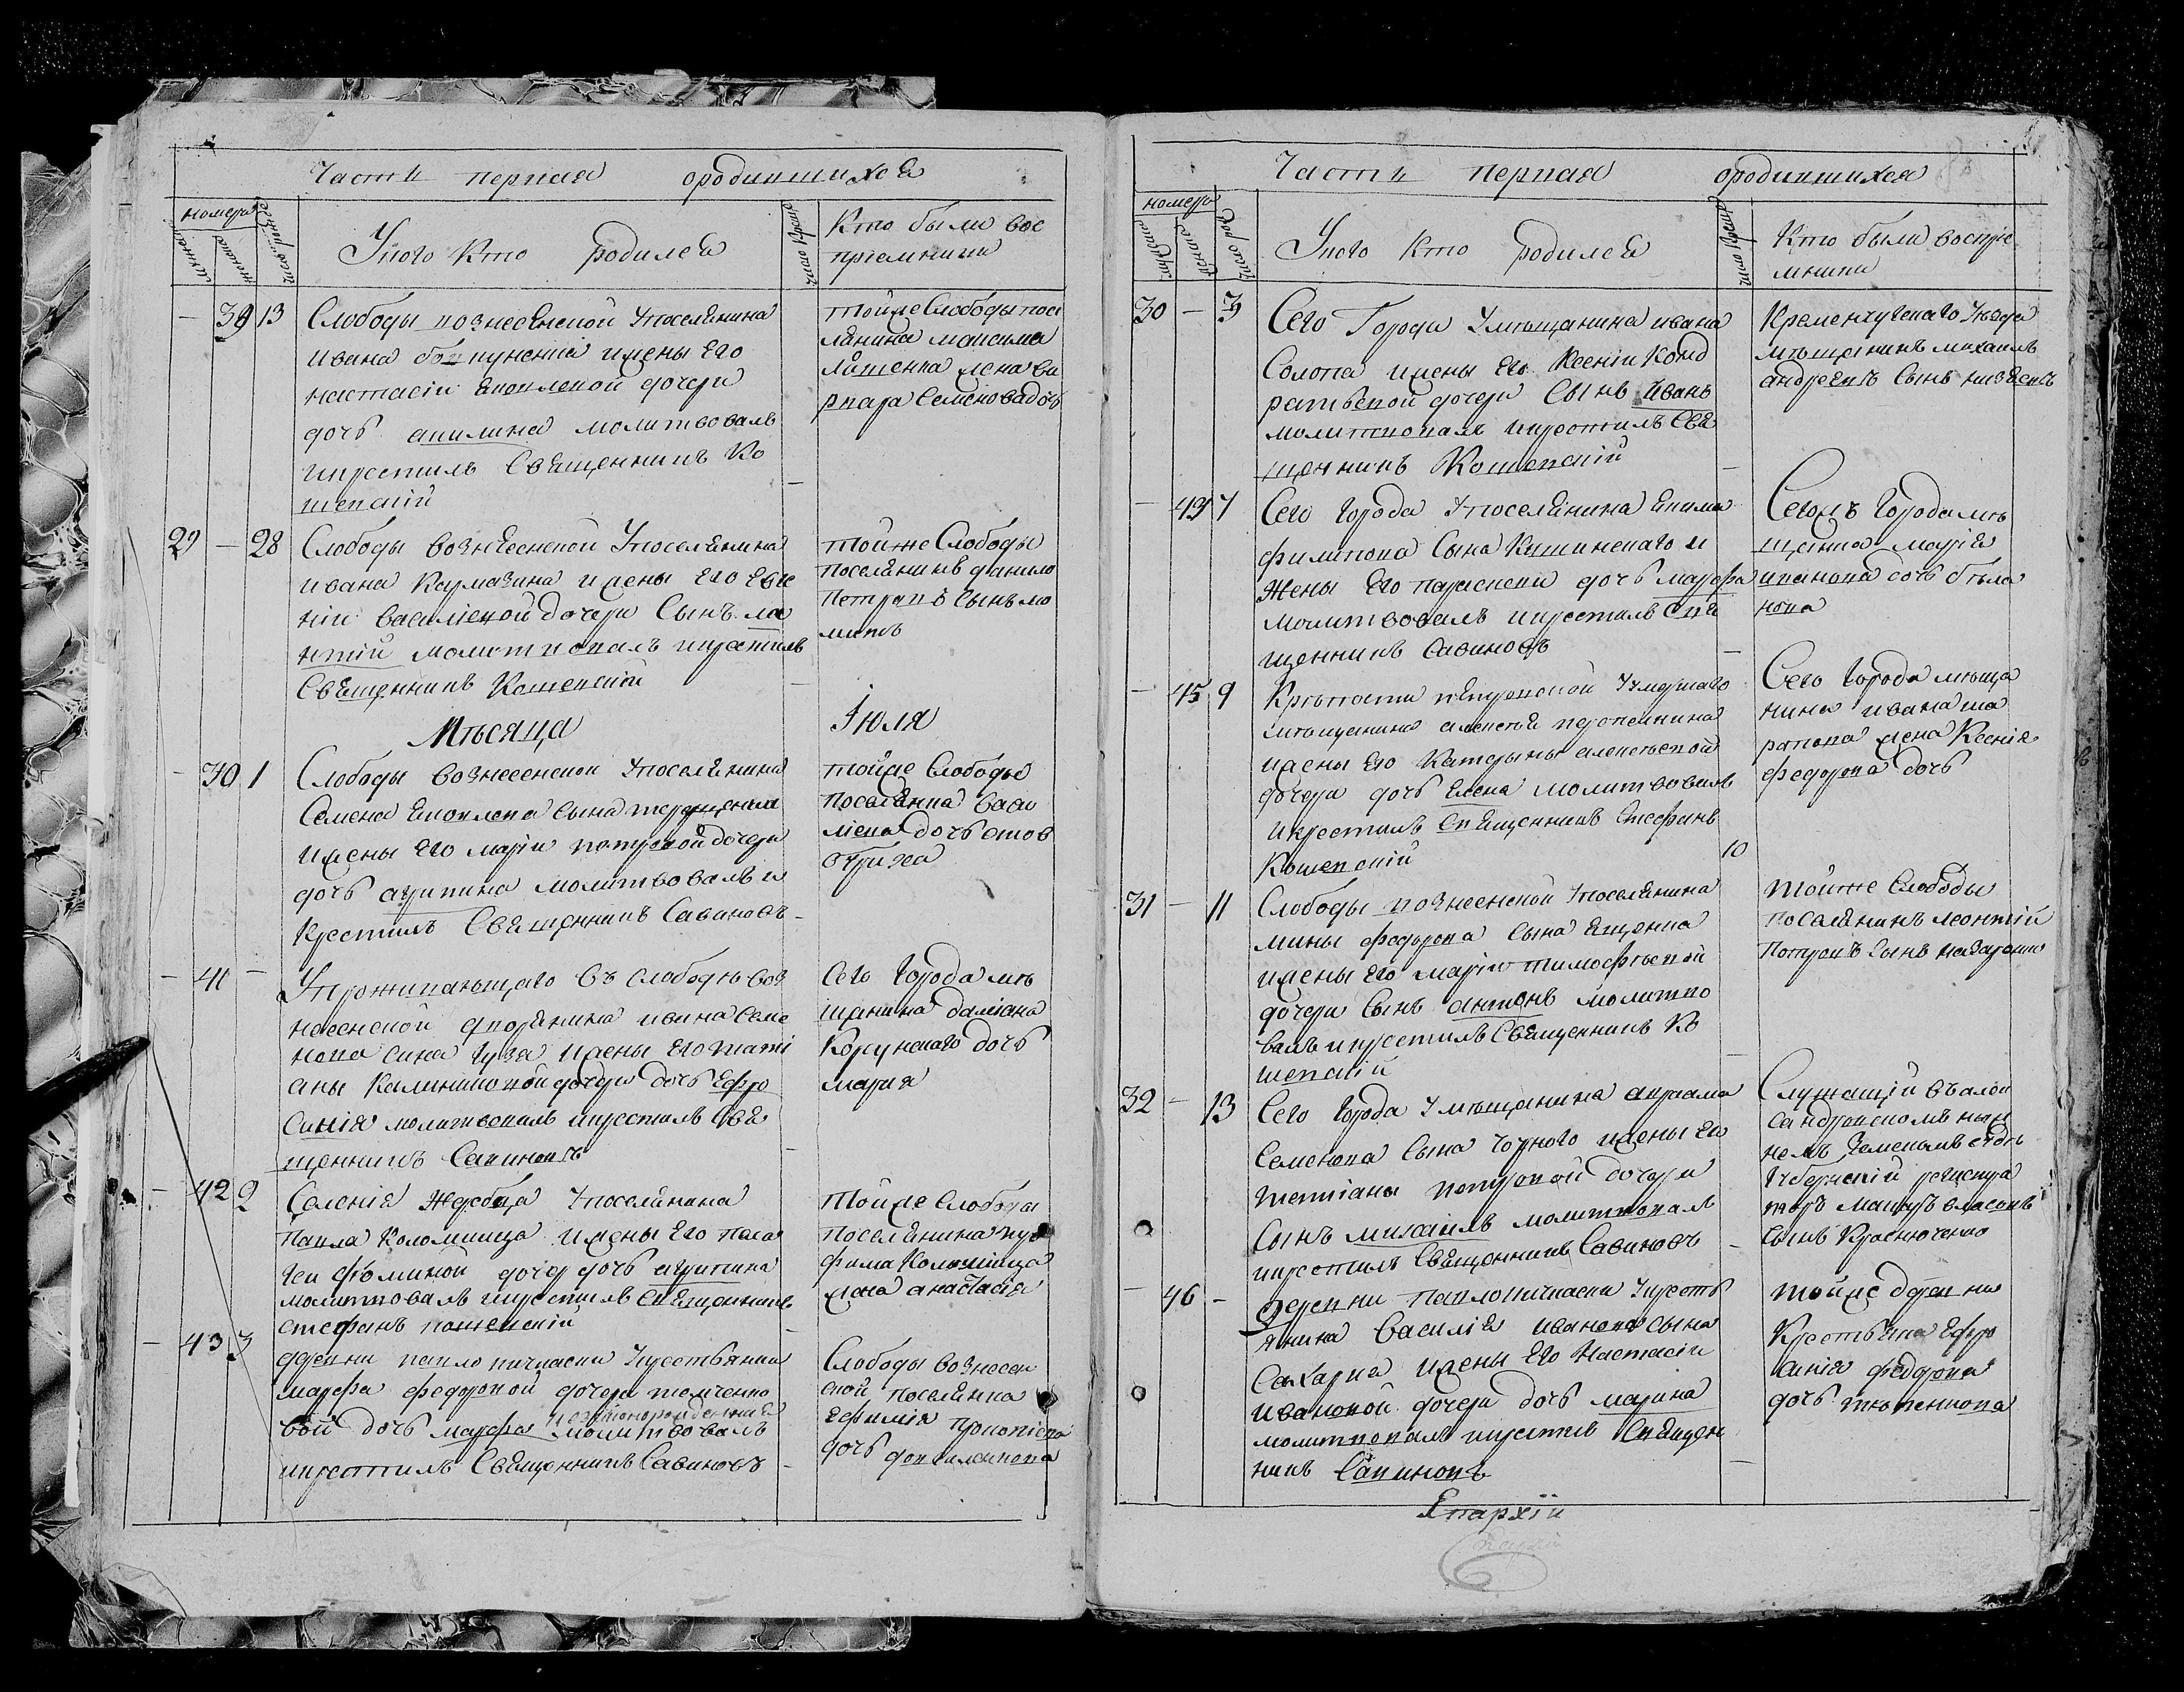 Часть первая ородившихся
номера
число рожде
Уного Кто родился
число Крещ
Кто были вос
приемники
— 39 13 Слободы вознесенской Упоселянина
Ивана
ижены Его
настасіи Яковлевой дочери
дочь акилина молитвовалъ
икрестилъ Священникъ Ко
шевскій
тойже Слободы посе
лянина максима
жена Ва
рвара Семеновадочь
29 — 28 Слободы вознесенской Упоселянина
Ивана Кармазина ижены Его Евге
ніи василіевой дочери Сынъ ле
нтій молитвовалъ икрестилъ
Священникъ Кошевскій
тойже Слободы
поселянинъ данило
Петровъ Сынъ
Мѣсяца Іюля
— 40 1 Слободы вознесенской Упоселянина
Семена Яковлева Сына терещенка
ижены Его маріи петровой дочери
дочь агрипина молитвовалъ и
Крестилъ Священникъ Савиновъ
тойже Слободы
Поселянка васи
ліева дочь
— 41 — Упроживающаго въ слободѣ воз
несенской дворянина ивана Семе
нова сина Гуза ижены Его тати
аны Калиниковой дочери дочь Ефро
синія молитвовалъ икрестилъ Свя
щенникъ Савиновъ
Сего Города мѣ
щанина даміана
Корсунскаго дочь
мария
— 42 2 Селенія Жеребца Упоселянина
Павла Коломийца ижены Его пела
геи Фоминой дочер дочь агрипина
молитвовалъ икрестилъ Священникъ
стефанъ кошевскій
тойже слободы
поселянина тро
фима Коломийца
жена анастасія
— 43 3 деревни павло кичкаски Укрестьянки
марфа федоровой дочери ткаченко
вой дочь марфа незаконорожденная молитвовалъ
икрестилъ Священникъ Савиновъ
Слободы вознесен
ской поселянка
Ефимія прокопіева
дочь
Часть первая ородившихся
номера
число рож
Уного Кто родился
число Крещ
Кто были воспрiе
мники
30 — 3 Сего Города Умѣщанина ивана
Солопа ижены Его Ксеніи Конд
ратьевой дочери Сынъ Иванъ
молитвовалъ икрестилъ Свя
щенникъ Кошевскій
Кременчугскаго Уезда
мѣщанинъ михаилъ
андреевъ Сынъ
— 44 7 Сего города Упоселянина Якима
филипова Сына Кишинскаго и
Жены Его параскеви дочь марфа
молитвовалъ икрестилъ Свя
щенникъ Савиновъ
Сегожъ Города мѣ
щанка марія
иванова дочь бѣла
нова
— 45 9 Крѣпости петровской Уумершаго
мѣщанина алексѣя
ижены Его Катерины алексѣевой
дочери дочь Елена молитвовалъ
икрестилъ Священникъ Стефанъ
Кошевскій
10
Сего Города мѣща
нина ивана ша
рапова жена Ксенія
федорова дочь
31 — 11 Слободы вознесенской Упоселянина
мины федорова Сына Ященка
ижены Его маріи тимофѣевой
дочери Сынъ антонъ молитво
валъ икрестилъ Священникъ Ко
шевскій
тойже Слободы
поселянинъ леонтій
Петровъ Сынъ назаренко
32 — 13 Сего Города Умѣщанина авраама
Семенова Сына Чорного ижены Его
тетіаны петровой дочери
Сынъ михаилъ молитвовалъ
икрестилъ Священникъ Савиновъ
Служащій въ алек
сандровскомъ ниж
немъ Земскомъ судѣ
Губернскій регистра
торъ власовъ
Сынъ Краснюченко
— 46 — деревни павлокичкаски Укресть
янина Василія иванова сына
Сахарна ижены Его Настасіи
ивановой дочери дочь марина
молитвовалъ икрестилъ Священ
никъ Савиновъ
тойже деревни
Крестьянка Ефро
синія федорова
дочь
Епархіи